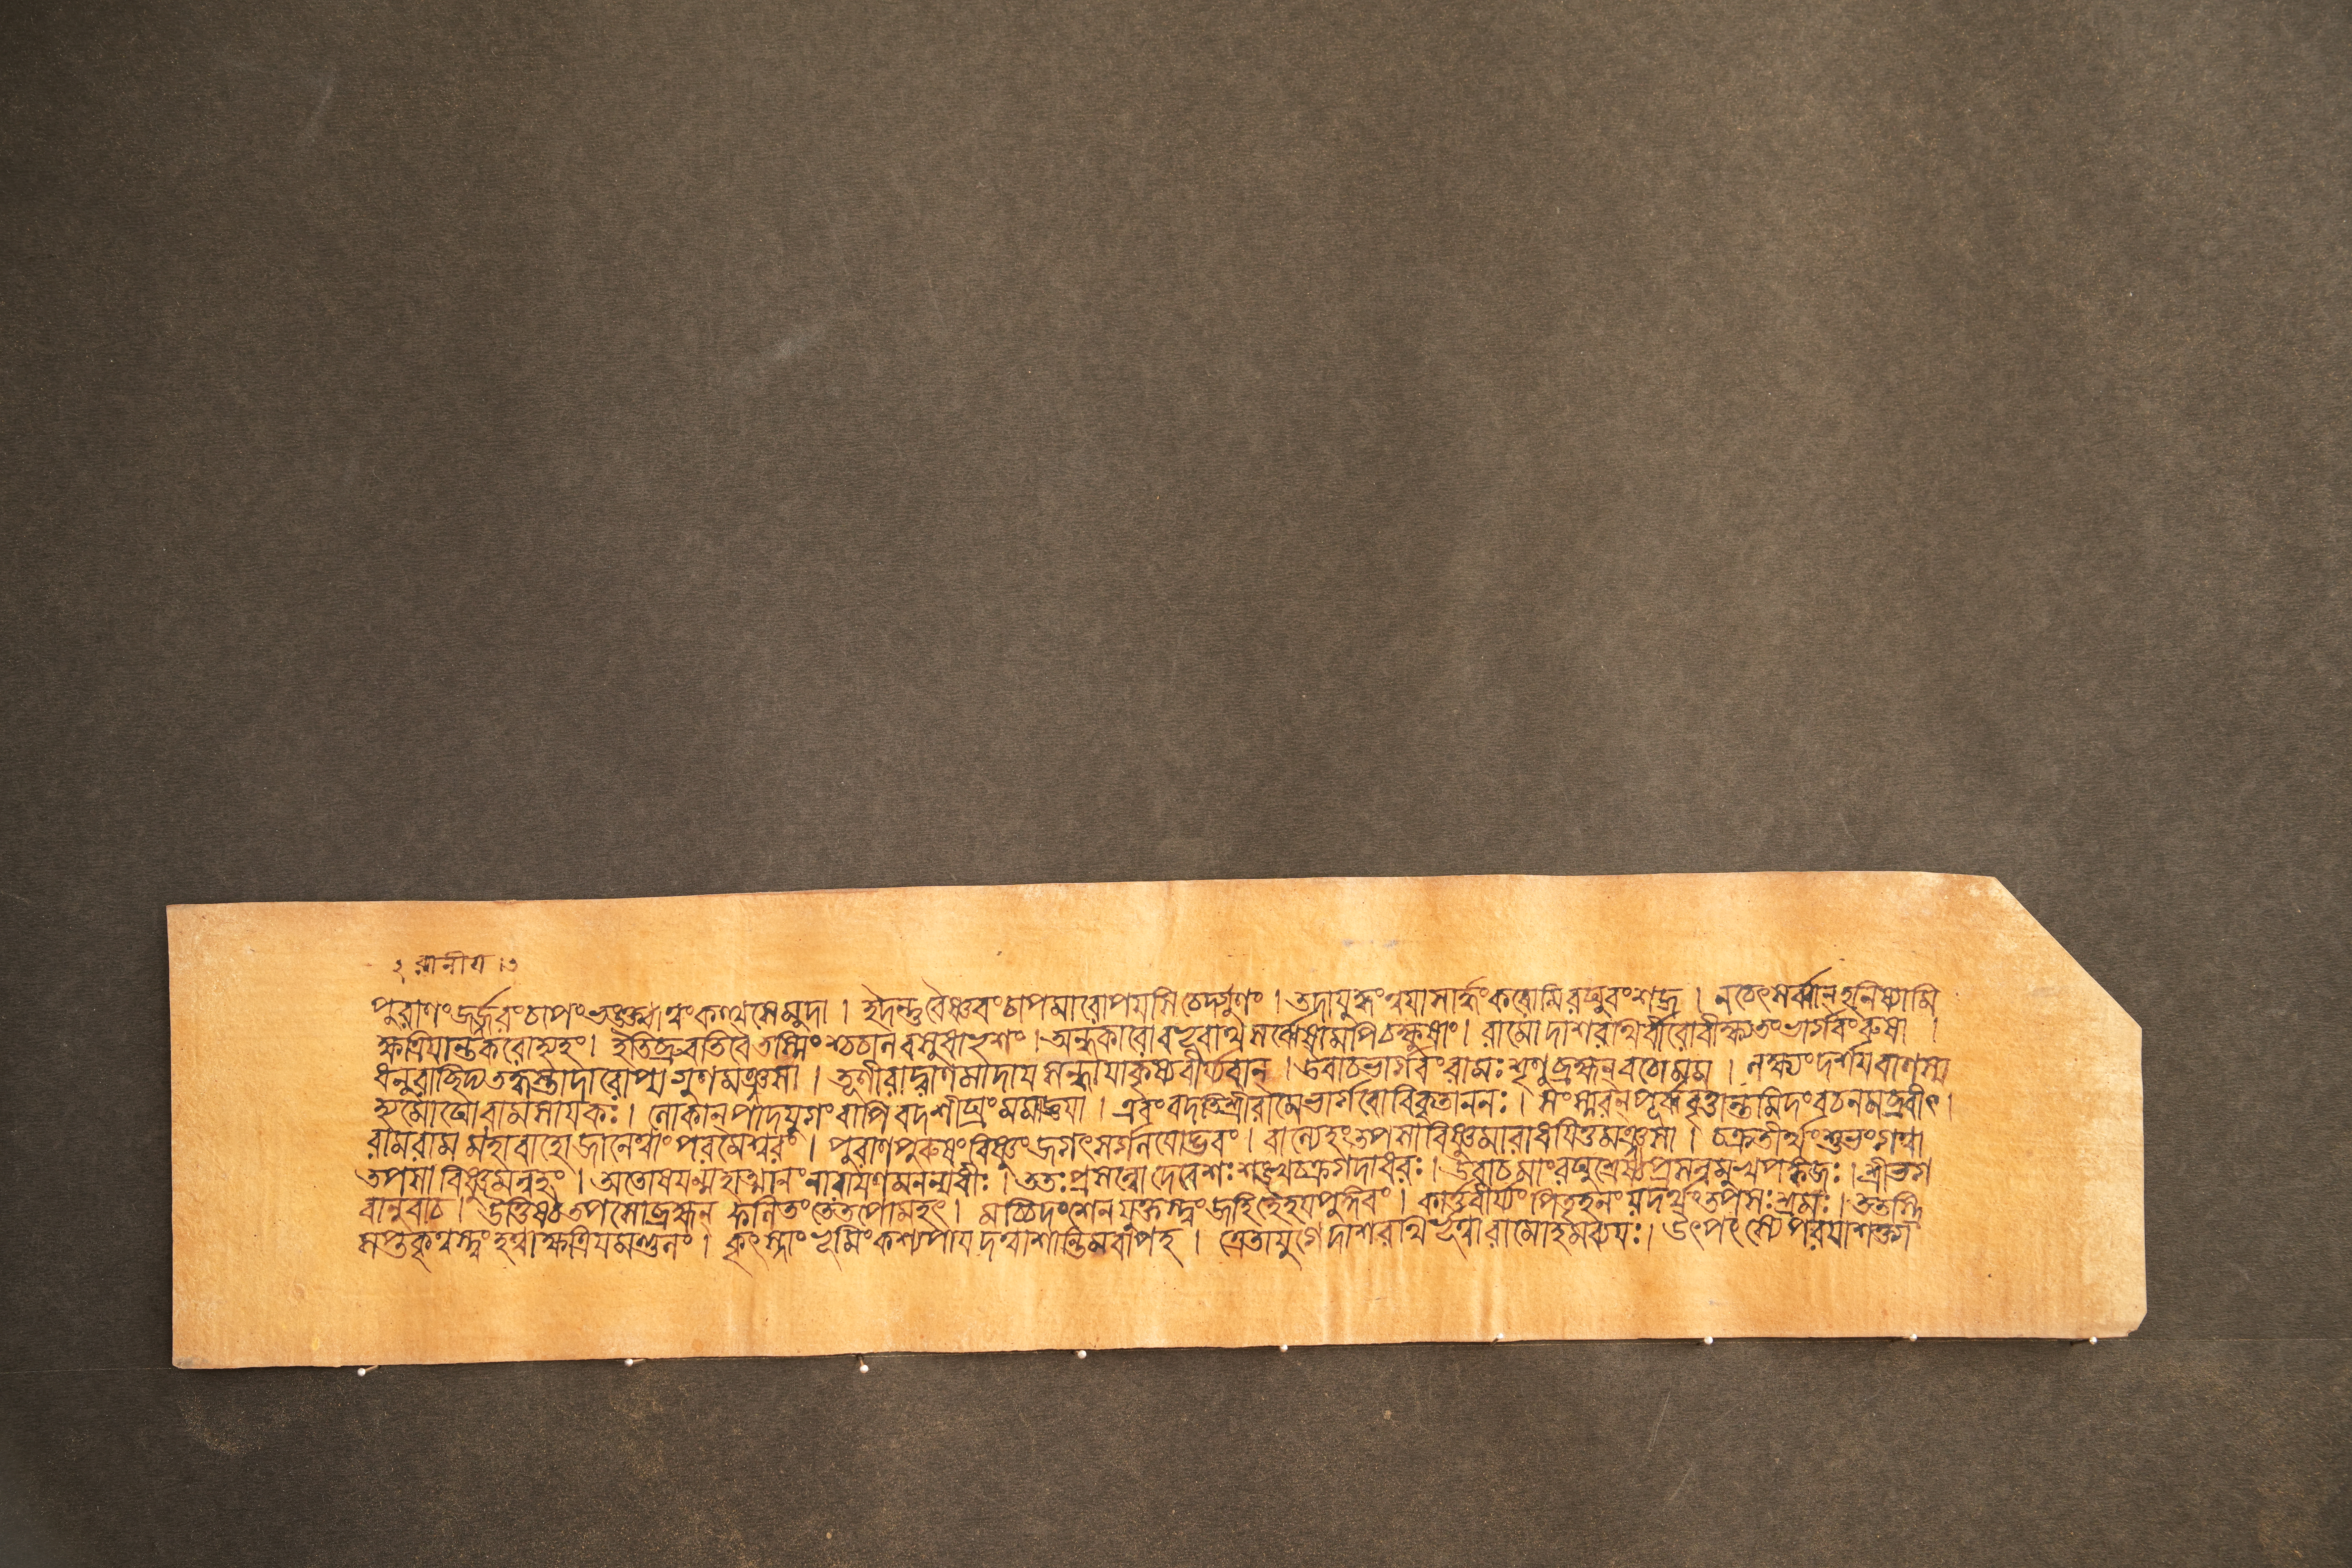 পুরাণং জর্জ্জরং চাপং ভঙ্ক্ত্বা ত্বং কত্থসে মুদা । ইদন্তু বৈষ্ণবং চাপমারোপয়সি চেদ্গুণং । তদা যুদ্ধং ত্বয়া সার্দ্ধং করোমি রঘুবংশজ । ন চেৎ সর্ব্বান্ হনিষ্যামি
ক্ষত্রিয়ান্তকরোহ্যহং । ইতি ব্রুবতি বৈ তস্মিংশ্চচাল বসুধা ভৃশং । অন্ধকারো বভূবাথ সর্ব্বেষামপি চক্ষুষাং । রামো দাশরথির্ব্বীরো বীক্ষ্য তং ভার্গবং রুষা ।
ধনুরাচ্ছিদ্য তদ্ধস্তাদারোপ্য গুণমঞ্জসা । তূণীরাদ্বাণমাদায় সন্ধায়াকৃষ্য বীর্য্যবান্ । উবাচ ভার্গবং রামঃ শৃণু ব্রহ্মন্ বচো মম । লক্ষ্যং দর্শয় বাণস্য
হ্যমোঘো রামসায়কঃ । লোকান্ পাদযুগং বাপি বদ শীঘ্রং মমাজ্ঞয়া । এবং বদতি শ্রীরামে ভার্গবো বিকৃতাননঃ । সংস্মরন্ পূর্ব্ববৃত্তান্তমিদং বচনমব্রবীৎ ।
রাম রাম মহাবাহো জানে ত্বাং পরমেশ্বরং । পুরাণপুরুষং বিষ্ণুং জগৎসর্গলয়োদ্ভবং । বাল্যেহং তপসা বিষ্ণুমারাধয়িতুমঞ্জসা । চক্রতীর্থং শুভং গত্বা
তপসা বিষ্ণুমন্বহং । অতোষয়ন্মহাত্মানং নারায়ণমনন্যধীঃ । ততঃ প্রসন্নো দেবেশঃ শঙ্খচক্রগদাধরঃ । উবাচ মাং রঘুশ্রেষ্ঠ প্রসন্নমুখপঙ্কজঃ । শ্রীভগ
বানুবাচ । উত্তিষ্ঠ তপসো ব্রহ্মন্ ফলিতং তে তপো মহৎ । মচ্চিদংশেন যুক্তস্ত্বং জহি হৈহয়পুঙ্গবং । কার্ত্তবীর্য্যং পিতৃহনং যদর্থং তপসঃ শ্রমঃ । ততস্ত্রি
সপ্তকৃত্বস্ত্বং হত্বা ক্ষত্রিয়মণ্ডলং । কৃৎস্নাং ভূমিং কশ্যপায় দত্বা শান্তিমবাপহ । ত্রেতাযুগে দাশরথির্ভূত্বা রামোহমব্যয়ঃ । উৎপৎস্যে পরয়া শক্ত্যা